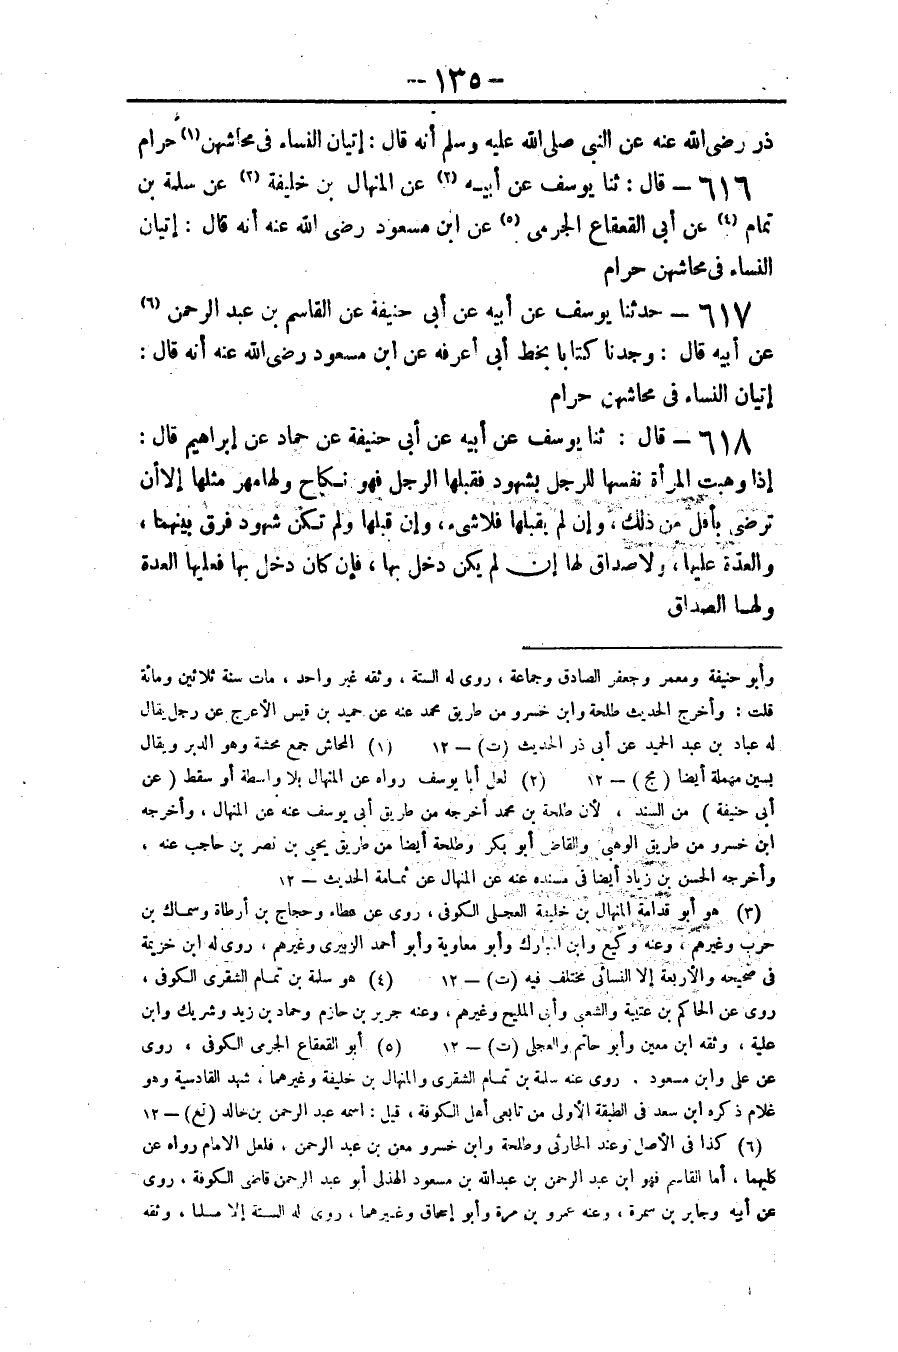 - ١٣٥ -
ذر رضى الله عنه عن النبى صلى الله عليه وسلم أنه قال : إتيان النساء فى محاشهن (١) حرام
٦١٦ - قال : ثنا يوسف عن أبيه (٢) عن المنهال بن خليفة (٣) عن سلمة بن
تمام (٤) عن أبى القعقاع الجرمى (٥) عن ابن مسعود رضى الله عنه أنه قال : إتيان
النساء فى محاشهن حرام
٦١٧ - حدثنا يوسف عن أبيه عن أبى حنيفة عن القاسم بن عبد الرحمن (٦)
عن أبيه قال : وجدنا كتابا بخط أبى أعرفه عن ابن مسعود رضى الله عنه أنه قال :
إتيان النساء فى محاشهن حرام
٦١٨ - قال : ثنا يوسف عن أبيه عن أبى حنيفة عن حماد عن إبراهيم قال :
إذا وهبت المرأة نفسها للرجل بشهود فقبلها الرجل فهو نكاح ولها مهر مثلها إلا أن
ترضى بأقل من ذلك ، وإن لم يقبلها فلا شىء ، وإن قبلها ولم تكن شهود فرق بينهما ،
والعدّة عليها ، ولا صداق لها إن لم يكن دخل بها ، فإن كان دخل بها فعليها العدة
ولها الصداق
وأبو حنيفة ومعمر وجعفر الصادق وجماعة ، روى له الستة ، وثقه غير واحد ، مات سنة ثلاثين ومائة
قلت : وأخرج الحديث طلحة وابن خسرو من طريق محمد عنه عن حميد بن قيس الأعرج عن رجل يقال
له عباد بن عبد الحميد عن أبى ذر الحديث (ت) - ١٢ (١) المحاش جمع محشة وهو الدبر ويقال
بسين مهملة أيضا ( مج ) - ١٢ (٢) لعل أبا يوسف رواه عن المنهال بلا واسطة أو سقط ( عن
أبى حنيفة ) من السند ، لأن طلحة بن محمد أخرجه من طريق أبى يوسف عنه عن المنهال ، وأخرجه
ابن خسرو من طريق الوهبى والقاضى أبو بكر وطلحة أيضا من طريق يحيى بن نصر بن حاجب عنه ،
وأخرجه الحسن بن زياد أيضا فى مسنده عنه عن المنهال عن ثمامة الحديث - ١٢
(٣) هو أبو قدامة المنهال بن خليفة العجلى الكوفى ، روى عن عطاء وحجاج بن أرطاة وسماك بن
حرب وغيرهم ، وعنه وكيع وابن المبارك وأبو معاوية وأبو أحمد الزبيرى وغيرهم ، روى له ابن خزيمة
فى صحيحه والأربعة إلا النسائى مختلف فيه (ت) - ١٢ (٤) هو سلمة بن تمام الشقرى الكوفى ،
روى عن الحاكم بن عتيبة والشعبى وأبى المليح وغيرهم ، وعنه جرير بن حازم وحماد بن زيد وشريك وابن
علية ، وثقه ابن معين وأبو حاتم والعجلى (ت) - ١٢ (٥) أبو القعقاع الجرمى الكوفى ، روى
عن على وابن مسعود . روى عنه سلمة بن تمام الشقرى والمنهال بن خليفة وغيرهما ، شهد القادسية وهو
غلام ذكره ابن سعد فى الطبقة الأولى من تابعى أهل الكوفة ، قيل : اسمه عبد الرحمن بن خالد (تع) - ١٢
(٦) كذا فى الأصل وعند الحارثى وطلحة وابن خسرو معن بن عبد الرحمن ، فلعل الامام رواه عن
كليهما ، أما القاسم فهو ابن عبد الرحمن بن عبدالله بن مسعود الهذلى أبو عبد الرحمن قاضى الكوفة ، روى
عن أبيه وجابر بن سمرة ، وعنه عمرو بن مرة وأبو إسحاق وغيرهما ، روى له الستة إلا مسلما ، وثقه